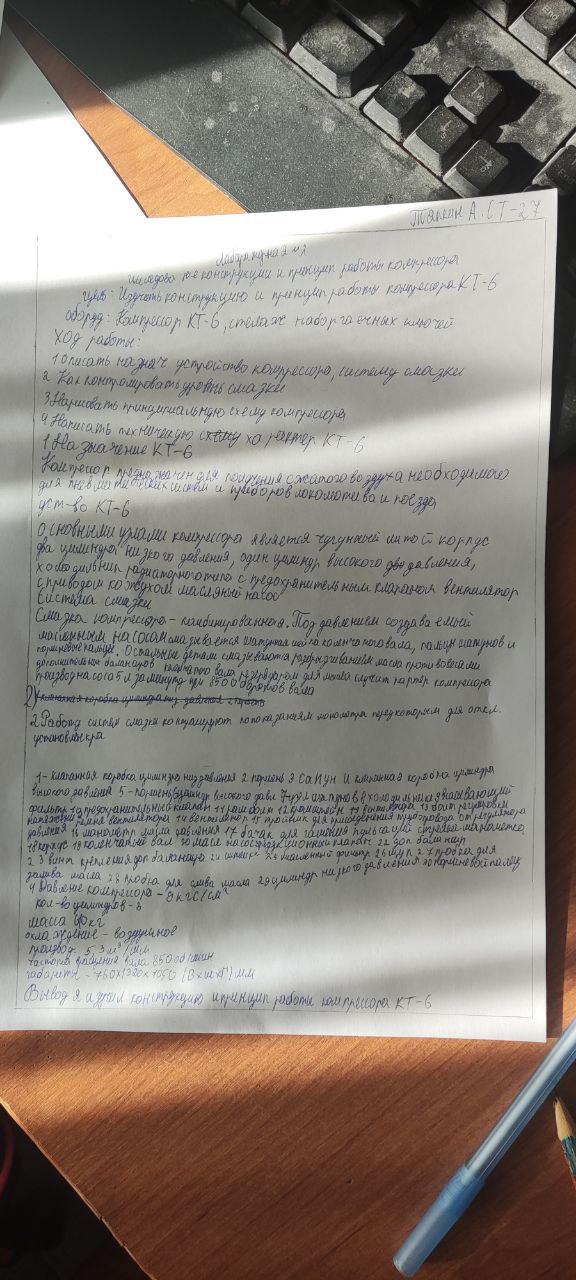 Тяпкин А. СТ-27
Лабораторная
конструкции и принцип работы компрессора
Цель: Изучить конструкцию и принцип работы компрессора КТ-6
оборуд: Компрессор КТ-6, стелаж набор гаечных ключей
ХОД работы:
1 Описать назнач устройство компрессора, систему смазки
2 Как контролировать уровень смазки
3 Нарисовать принципиальную схему компрессора
4 Написать техническую схему характер КТ-6
1 Назначение КТ-6
Компрессор предназначен для получения сжатого воздуха необходимого
для пневматических систем и приборов локомотива и поезда
уст-во КТ-6
Основными узлами компрессора является чугунный литой корпус
два цилиндра низкого давления, один цилиндр высокого давления,
холодильник радиаторного типа с предохранительным клапаном вентилятор
с приводом кожухом масляный насос
Система смазки
Смазка компрессора - комбинированная. Под давлением создаваемый
масляным насосам смазывается шатунная шейка коленчатого вала, пальцы шатунов и
поршневые пальцы. Остальные детали смазываются разбрызгиванием масла противовесами
дополнительные балансиров коленчатого вала резервуаром для масла служит картер компрессора
производ насоса 5 л за минуту при 850 оборотов вала
2) клапанная коробка цилиндра низ давления
2 Работа систем смазки контролируют по показаниям манометра перед которым для откл.
установлен кра
1 - клапанная коробка цилиндр низ давления 2 поршень 3 сапун 4 клапанная коробка цилиндра
высокого давления 5 - поршень 6 цилиндр высокого давл 7 узел шатунов 8 холодильник 9 всасывающий
фильтр 10 предохранительный клапан 11 рым болт 12 кронштейн 13 вентилятора 13 болт регулировки
натяжения ремня вентилятора 14 вентилятор 15 тройник для присоединения трубопровода от регулятора
давления 16 манометр масла давления 17 бачок для гашения пульсаций стрелки манометра
18 корпус 19 коленчатый вал 20 масл насос 21 редукционный клапан 22 доп балансир
23 винт крепления доп балансира 24 шплинт 25 масленный фильтр 26 щуп 27 пробка для
залива масла 28 пробка для слива масла 29 цилиндр низкого давления 30 поршневой палец
4 Давление компрессора - 9 кгс/см²
кол-во цилиндров - 3
масса кг
охлаждение - воздушное
производ - 5,3 м³/мм
частота вращения вала 850 об/мин
габариты - 760x1320x1050 (ВхШхГ) мм
Вывод я изучил конструкцию и принцип работы компрессора КТ-6